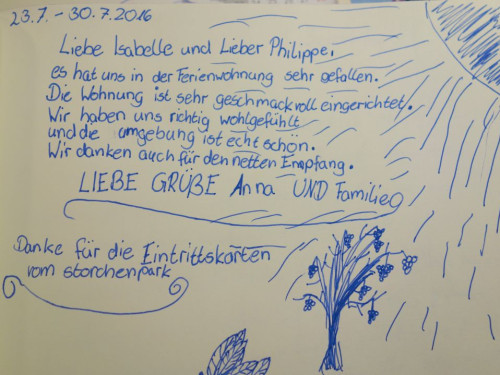 23.7. - 30.7.2016
Liebe Isabelle und Lieber Philippe,
es hat uns in der Ferienwohnung sehr gefallen.
Die Wohnung ist sehr geschmackvoll eingerichtet.
Wir haben uns richtig wohlgefühlt
und die umgebung ist echt schön.
Wir danken auch für den netten Empfang.
LIEBE GRÜßE Anna UND Familie
Danke für die Eintrittskarten
vom storchenpark